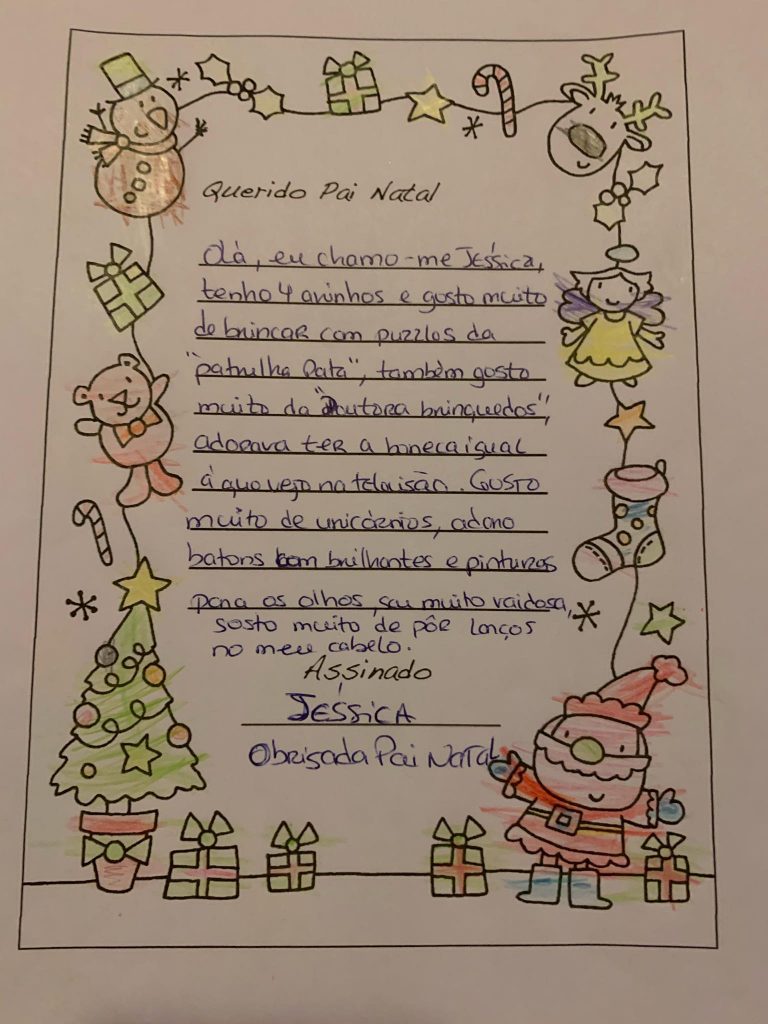 Querido Pai Natal
Olá, eu chamo-me Jéssica,
tenho 4 aninhos e gosto muito
de brincar com puzzles da
"patrulha Pata", também gosto
muito da "Doutora brinquedos",
adorava ter a boneca igual
á que vejo na televisão. Gosto
muito de unicórnios, adoro
batons com brilhantes e pinturas
para os olhos, sou muito vaidosa,
gosto muito de pôr laços
no meu cabelo.
Assinado
Jéssica
Obrigada Pai Natal